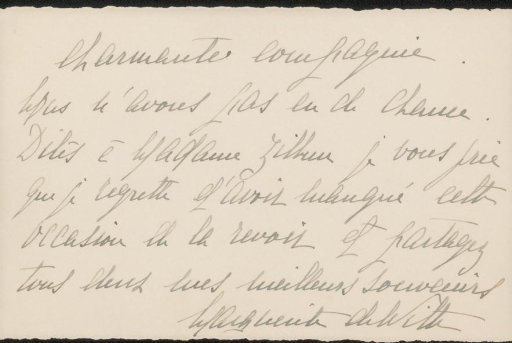 charmante compagnie.
Nous n'avons pas eu de chance.
Dites à Madame Zilken je vous prie
que je regrette d'avoir manqué cette
occasion de la revoir et partagez
tous deux mes meilleurs souvenirs
Marguerite de Witte